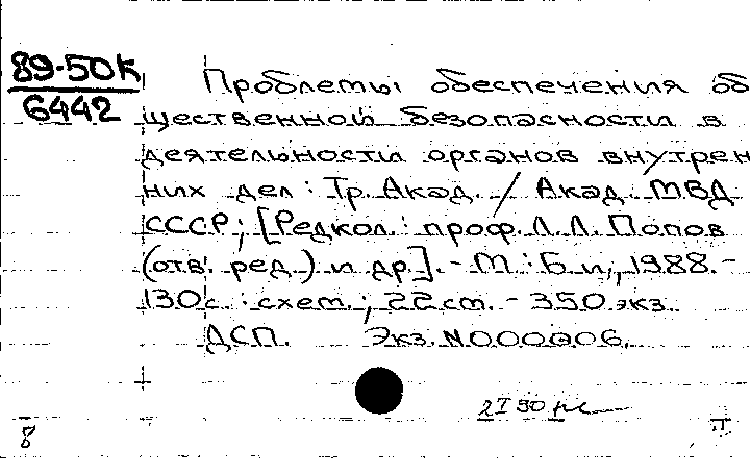 89-50К
6442
Проблемы обеспечения об
щественной безопасности в
деятельности органов внутрен
них дел : Тр. Акад. / Акад. МВД
СССР; [Редкол.: проф. Л.Л. Попов
(отв. ред.) и др.]. - М : Б.и., 1988. -
130с. : схем. ; 22 см. - 350 экз.
ДСП. Экз. N000006.
2 I 90
8
П